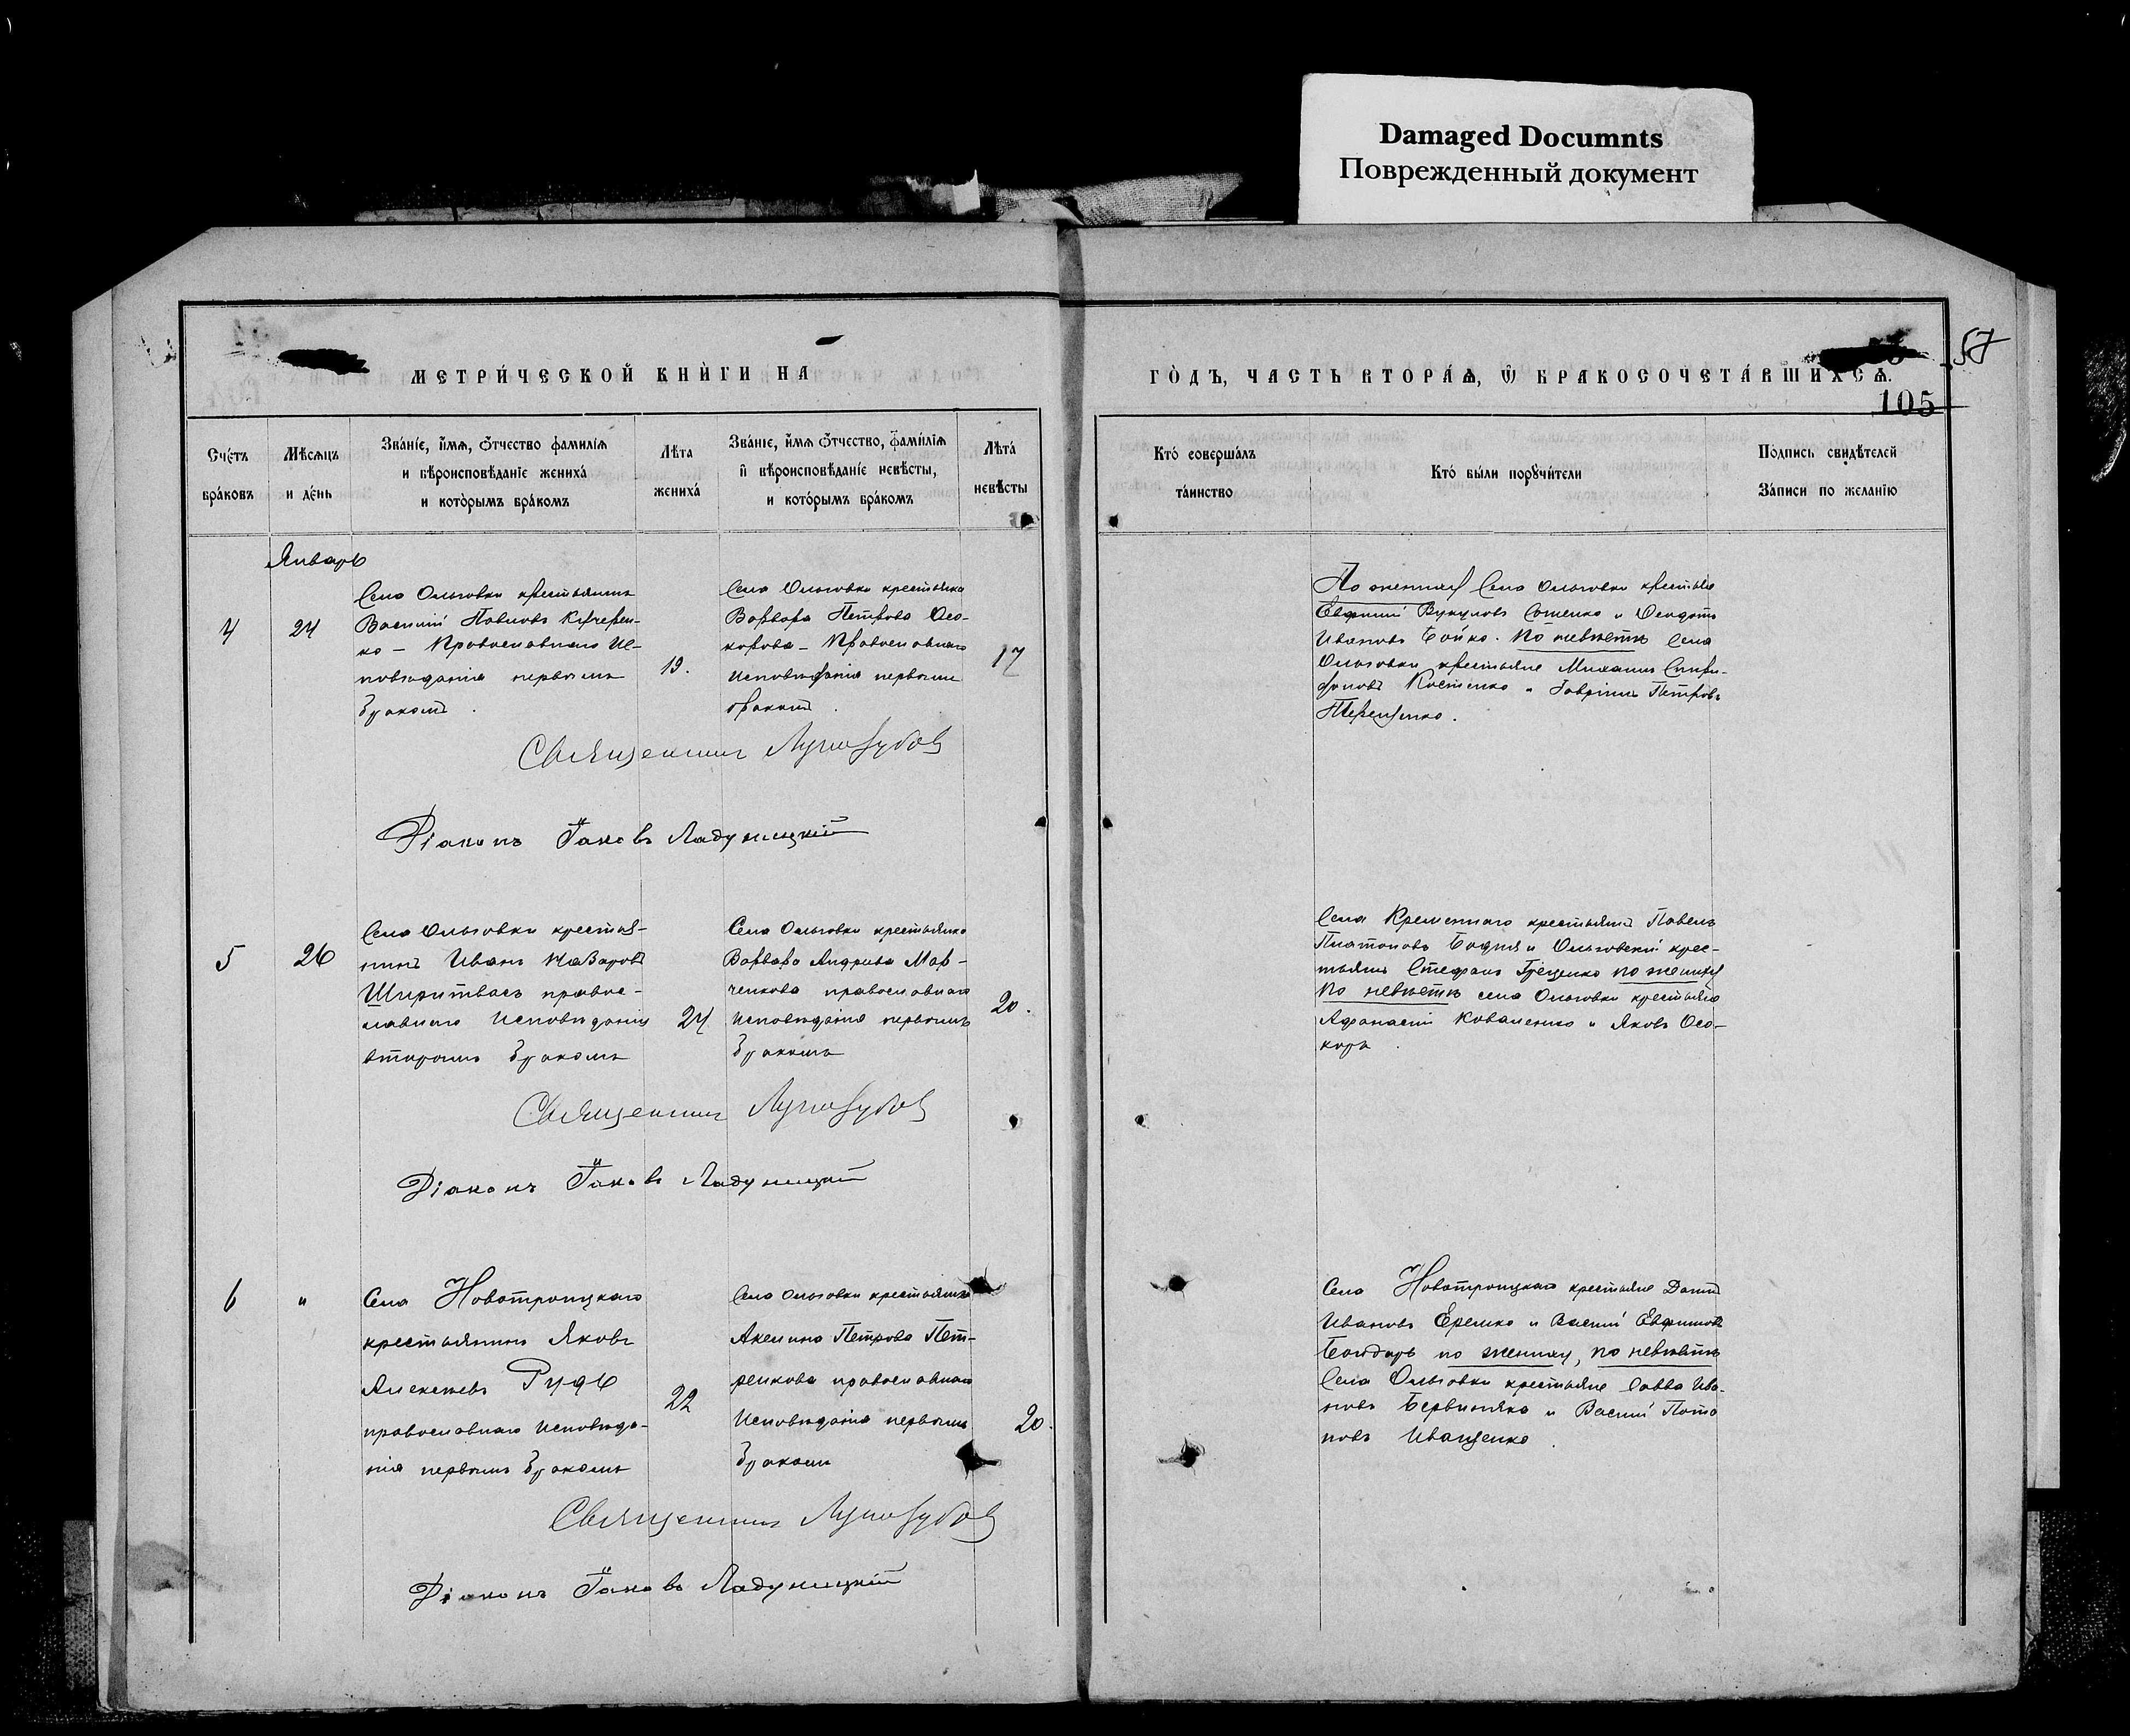 Damaged Documnts
Поврежденный документ
МЕТРИ́ЧЕСКОЙ КНИ́ГИ НА
ГО́ДЪ, ЧАСТЬ ВТОРА́Ѧ, Ѿ БРАКОСОЧЕТА́ВШИХСѦ.
57
105
Сче́тъ
бра́ковъ
Мѣсѧцъ
и де́нь
Зва́ніе, и́мѧ, о́тчество фамилія
и вѣроисповѣданіе жениха́
и кото́рымъ бра́комъ
Лѣта
жениха́
Зва́ніе, и́мѧ о́тчество, фами́лія
и вѣроисповѣданіе невѣсты,
и кото́рымъ бра́комъ
Лѣта́
невѣсты
Кто́ соверша́лъ
та́инство
Кто́ бы́ли порꙋчи́тели
По́дпись свидѣтелей
За́писи по желанію
Январь
4
24
Села Ольговки крестьянинъ
Василій Павловъ Кучерен-
ко – Православнаго Ис-
повѣданія первымъ
бракомъ.
19.
Села Ольговки крестьянка
Варвара Петрова Осо-
корова – Православнаго
Исповѣданія первымъ
бракомъ.
17
По жениху Села Ольговки крестьяне
Евфимій Вукуловъ Сошенко и Феодотъ
Ивановъ Бойко. По невѣстѣ Села
Ольговки крестьяне Михаилъ Спири-
доновъ Костенко и Гавріилъ Петровъ
Терещенко.
Священникъ
Діаконъ Іаковъ Ладуницкій
5
26
Села Ольговки крестья-
нинъ Иванъ Назаровъ
правос-
лавнаго Исповѣданія
вторымъ бракомъ
24
Села Ольговки крестьянка
Варвара Андреева Мар-
ченкова православнаго
Исповѣданія первымъ
бракомъ
20.
Села Кременнаго крестьянинъ Павелъ
Платоновъ Бодня и Ольговскій крес-
тьянинъ Стефанъ Грищенко по жениху
По невѣстѣ села Ольговки крестьяне
Афанасій Коваленко и Яковъ Осо-
коръ.
Священникъ
Діаконъ Іаковъ Ладуницкій
6
"
Села Новотроицкаго
крестьянинъ Яковъ
Алексѣевъ Рудь
православнаго Исповѣда-
нія первымъ бракомъ
22
Села Ольговки крестьянка
Акелина Петрова Пет-
ренкова православнаго
Исповѣданія первымъ
бракомъ
20.
Села Новотроицкаго крестьяне Данiилъ
Ивановъ Еремко и Василій Евфимовъ
Бондарь по жениху, по невѣстѣ
Села Ольговки крестьяне Савва Ива-
новъ Бервиняка и Василій Пота
повъ Иващенко.
Священникъ
Діаконъ Іаковъ Ладуницкій